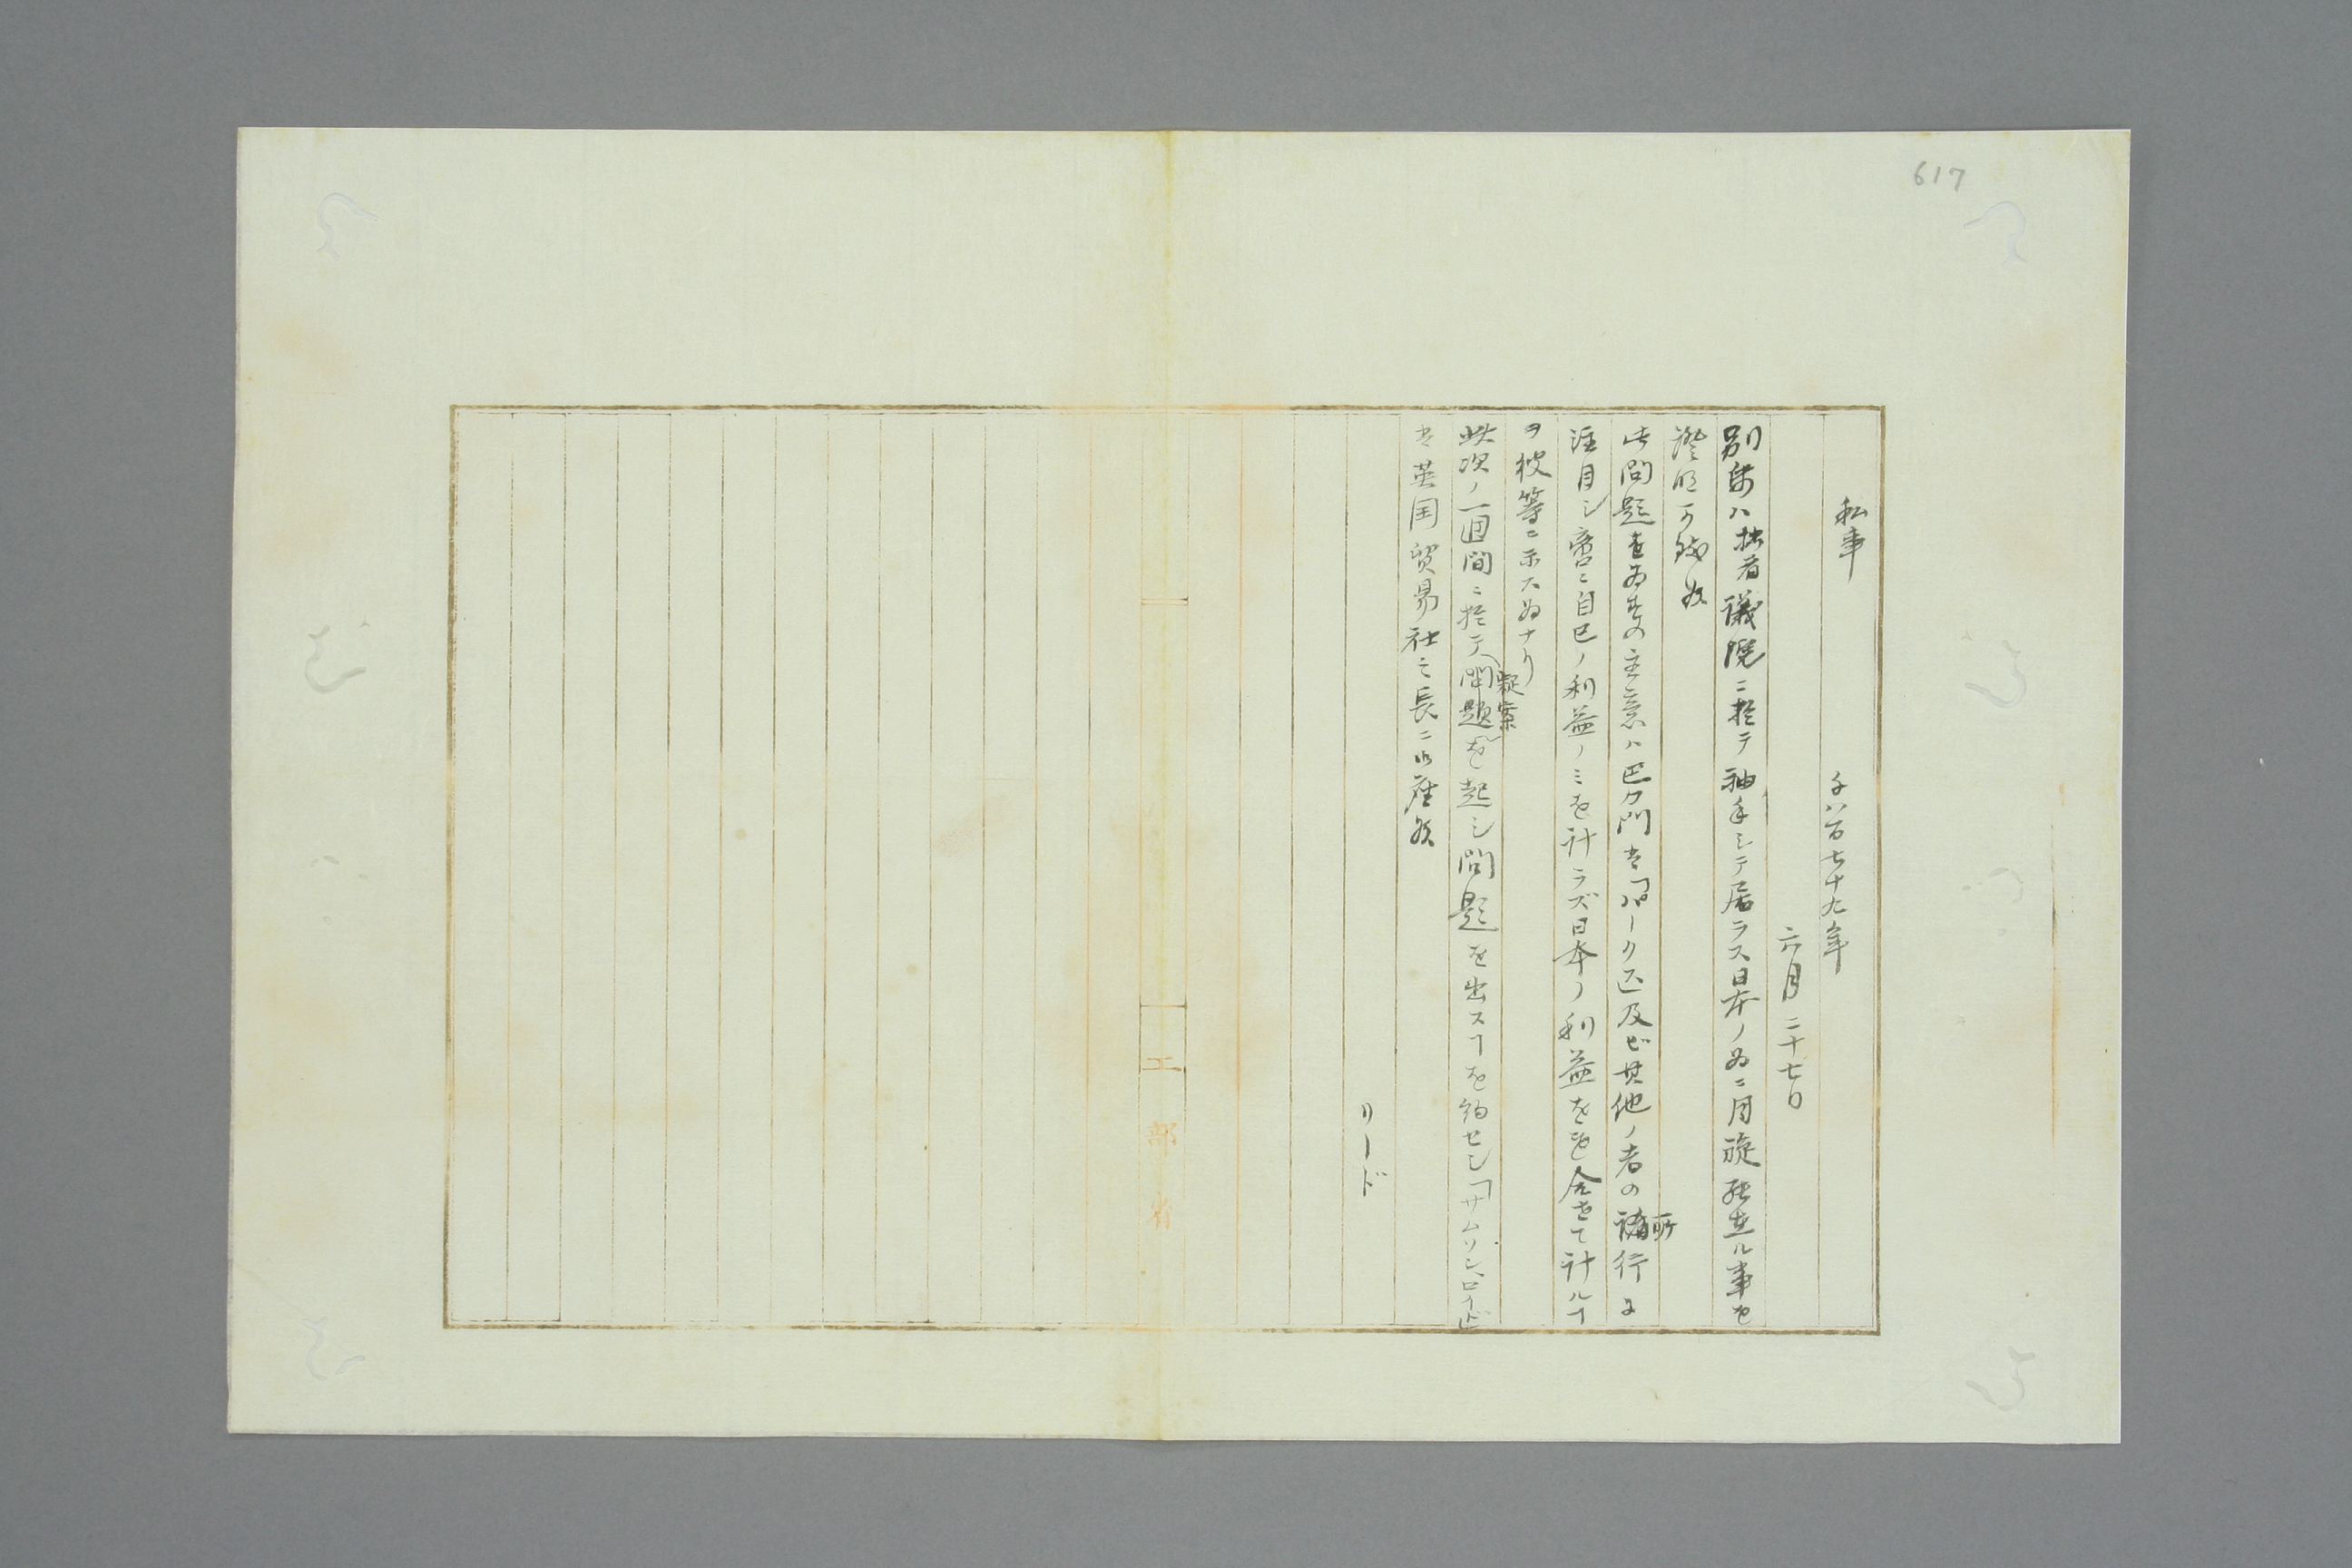 617
私事
千八百七十九年
六月二十七日
別紙ハ拙者議院ニ於テ袖手シテ居ラス日本ノ為ニ周旋致在ル事を
證明可致候
此問題書為替の主意ハ巴力門者「パークス」及ビ其他ノ者の諸所行に
注目シ啻ニ自己ノ利益ノミを計ラズ日本ノ利益をも合せて計ルヿ
ヲ彼等ニ示ス為ナリ
此次ノ一週間ニ於テ問題疑案を起シ問題を出スヿを約セシ「サムソン、ロイド」
は英国貿易社之長ニ御座候
リード
工部省